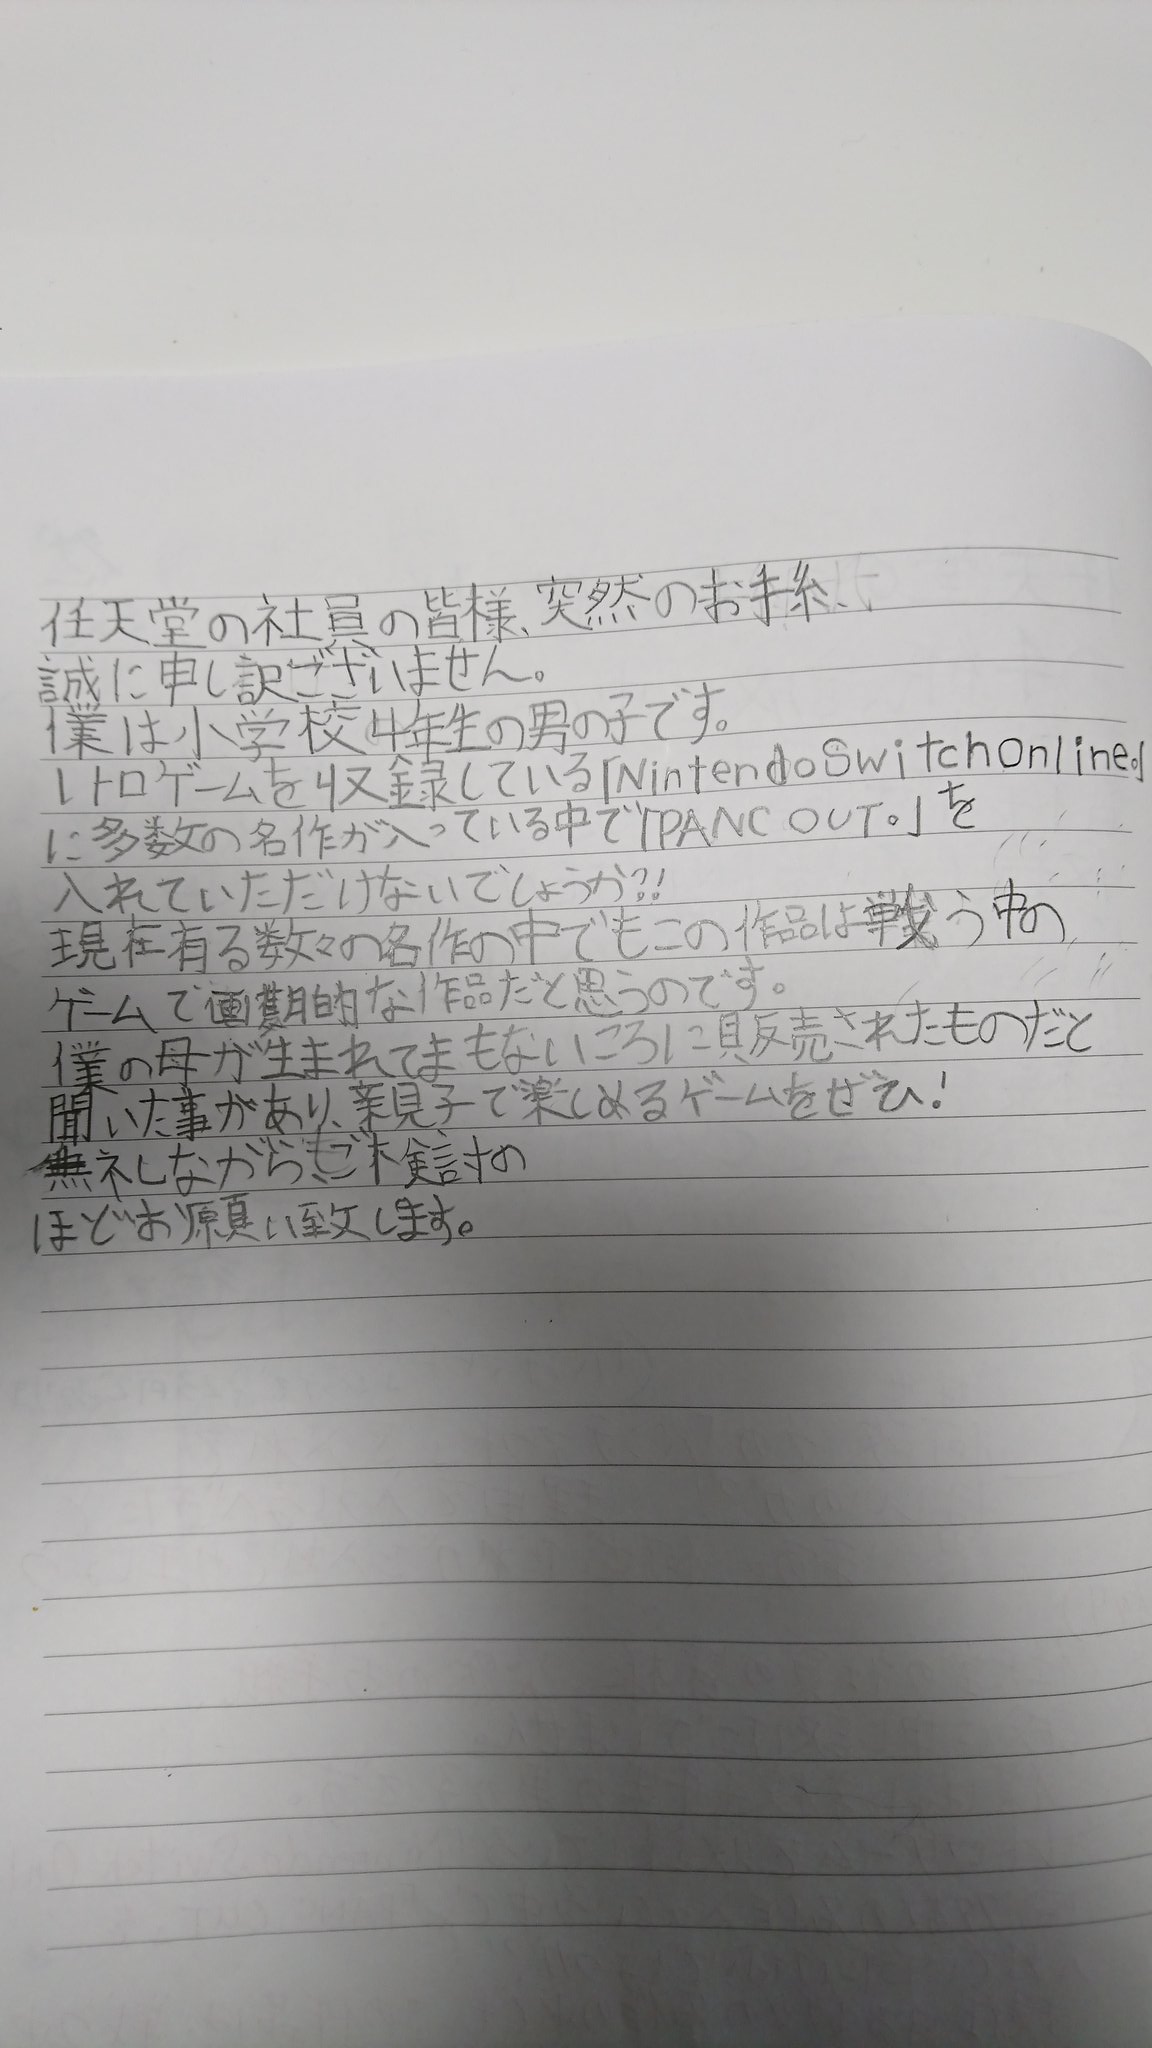 任天堂の社員の皆様、突然のお手糸、
誠に申し訳ございません。
僕は小学校4年生の男の子です。
レトロゲームを収録している「NintendoSwitchOnline。」
に多数の名作が入っている中で「PANC OUT。」を
入れていただけないでしょうか?!
現在有る数々の名作の中でもこの作品は戦う中の
ゲームで画期的な作品だと思うのです。
僕の母が生まれてまもないころに販売されたものだと
聞いた事があり、親子で楽しめるゲームをぜひ!
無礼しながらもご検討の
ほどお願い致します。